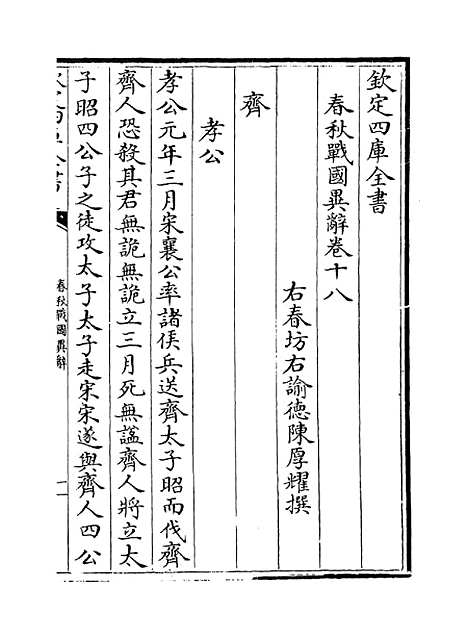 欽定四庫全書
春秋戰國異辭卷十八
右春坊右諭徳陳厚耀撰
齊
孝公
孝公元年三月宋襄公率諸侯兵送齊太子昭而伐齊
齊人恐殺其君無詭無詭立三月死無諡齊人將立太
子昭四公子之徒攻太子太子走宋宋遂與齊人四公
春秋戰國異辭
一